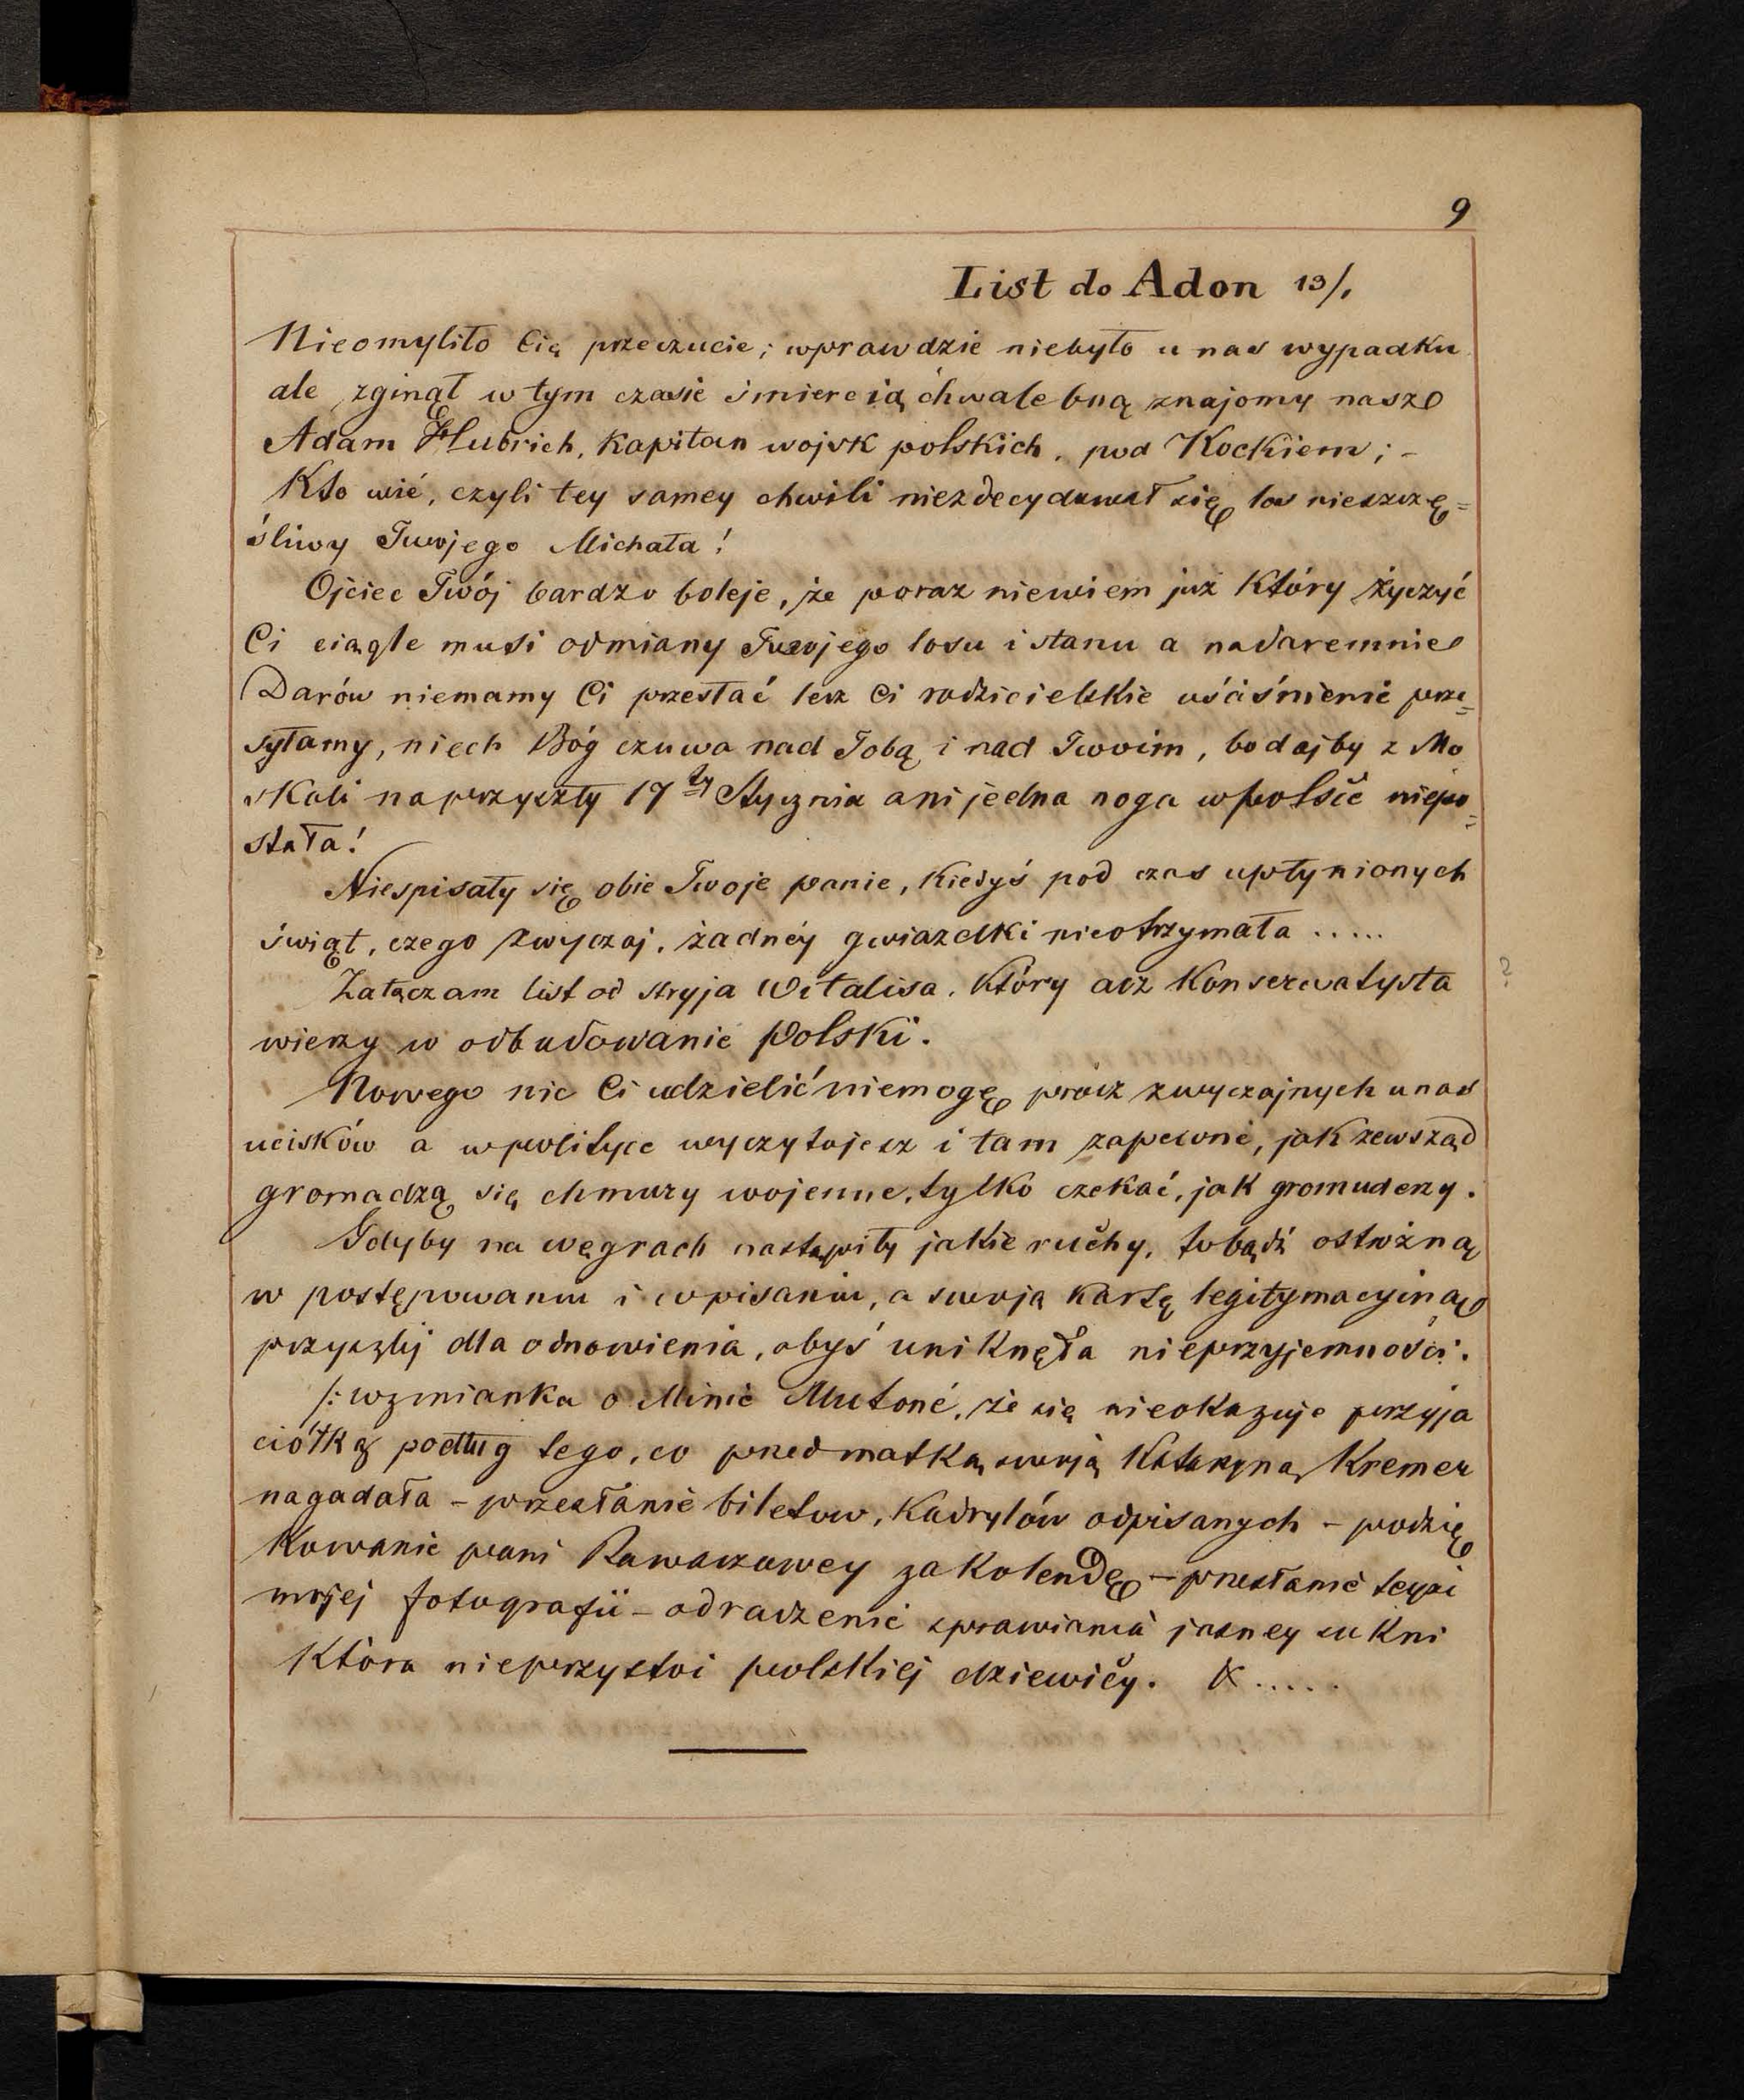 9
List do Adon 13/1
Nieomyliło Cię przeczucie; wprawdzie niebyło u nas wypadku
ale zginął w tym czasie śmiercią chwalebną znajomy nasz
Adam Hubrich, Kapitan wojsk polskich, pod Kockiem; –
Kto wié, czyli tey samey chwili niezdecydował się los nieszczę=
śliwy Twojego Michała!
Ojciec Twój bardzo boleje, że poraz niewiem już Który życzyć
Ci ciągle musi odmiany Twojego losu i stanu a nadaremnie
Darów niemamy Ci przesłać lecz Ci rodzicielskie uściśnienie prze=
syłamy, niech Bóg czuwa nad Tobą i nad Twoim, bodajby z Mo
skali naprzyszły 17ty Stycznia ani jedna noga wpolsce niepo=
stała!
Niespisały się obie Twoje panie, Kiedyś pod czas upłynionych
świąt, czego zwyczaj, żadnéy gwiazdki nieotrzymała .....
Załączam list od stryja Witalisa, Który acz Konserwatysta
wierzy w odbudowanie Polski.
?
Nowego nic Ci udzielić niemogę prócz zwyczajnych unas
ucisków a wpolityce wyczytujesz i tam zapewne, jak zewsząd
gromadzą się chmury wojenne, tylko czekać, jak gromuderzy.
Gdyby na węgrach nastąpiły jakie ruchy, tobądź ostrożną
w postępowaniu i wpisaniu, a swoją Kartę legitymacyjną
przyszlij dla odnowienia, abyś uniknęła nieprzyjemności.
/: wzmianka o Minie Mutoné, że się nieokazuje przyja
ciółką podług tego, co przed matką swoją Katarzyną Kremer
nagadała – przesłanie biletow, Kadrylów odpisanych – podzię
Kowanie pani za Kolendę – przesłanie teyże
mojej fotografii – odradzenie sprawiania jasney sukni
Która nieprzystoi polskiej dziewicy. &.....